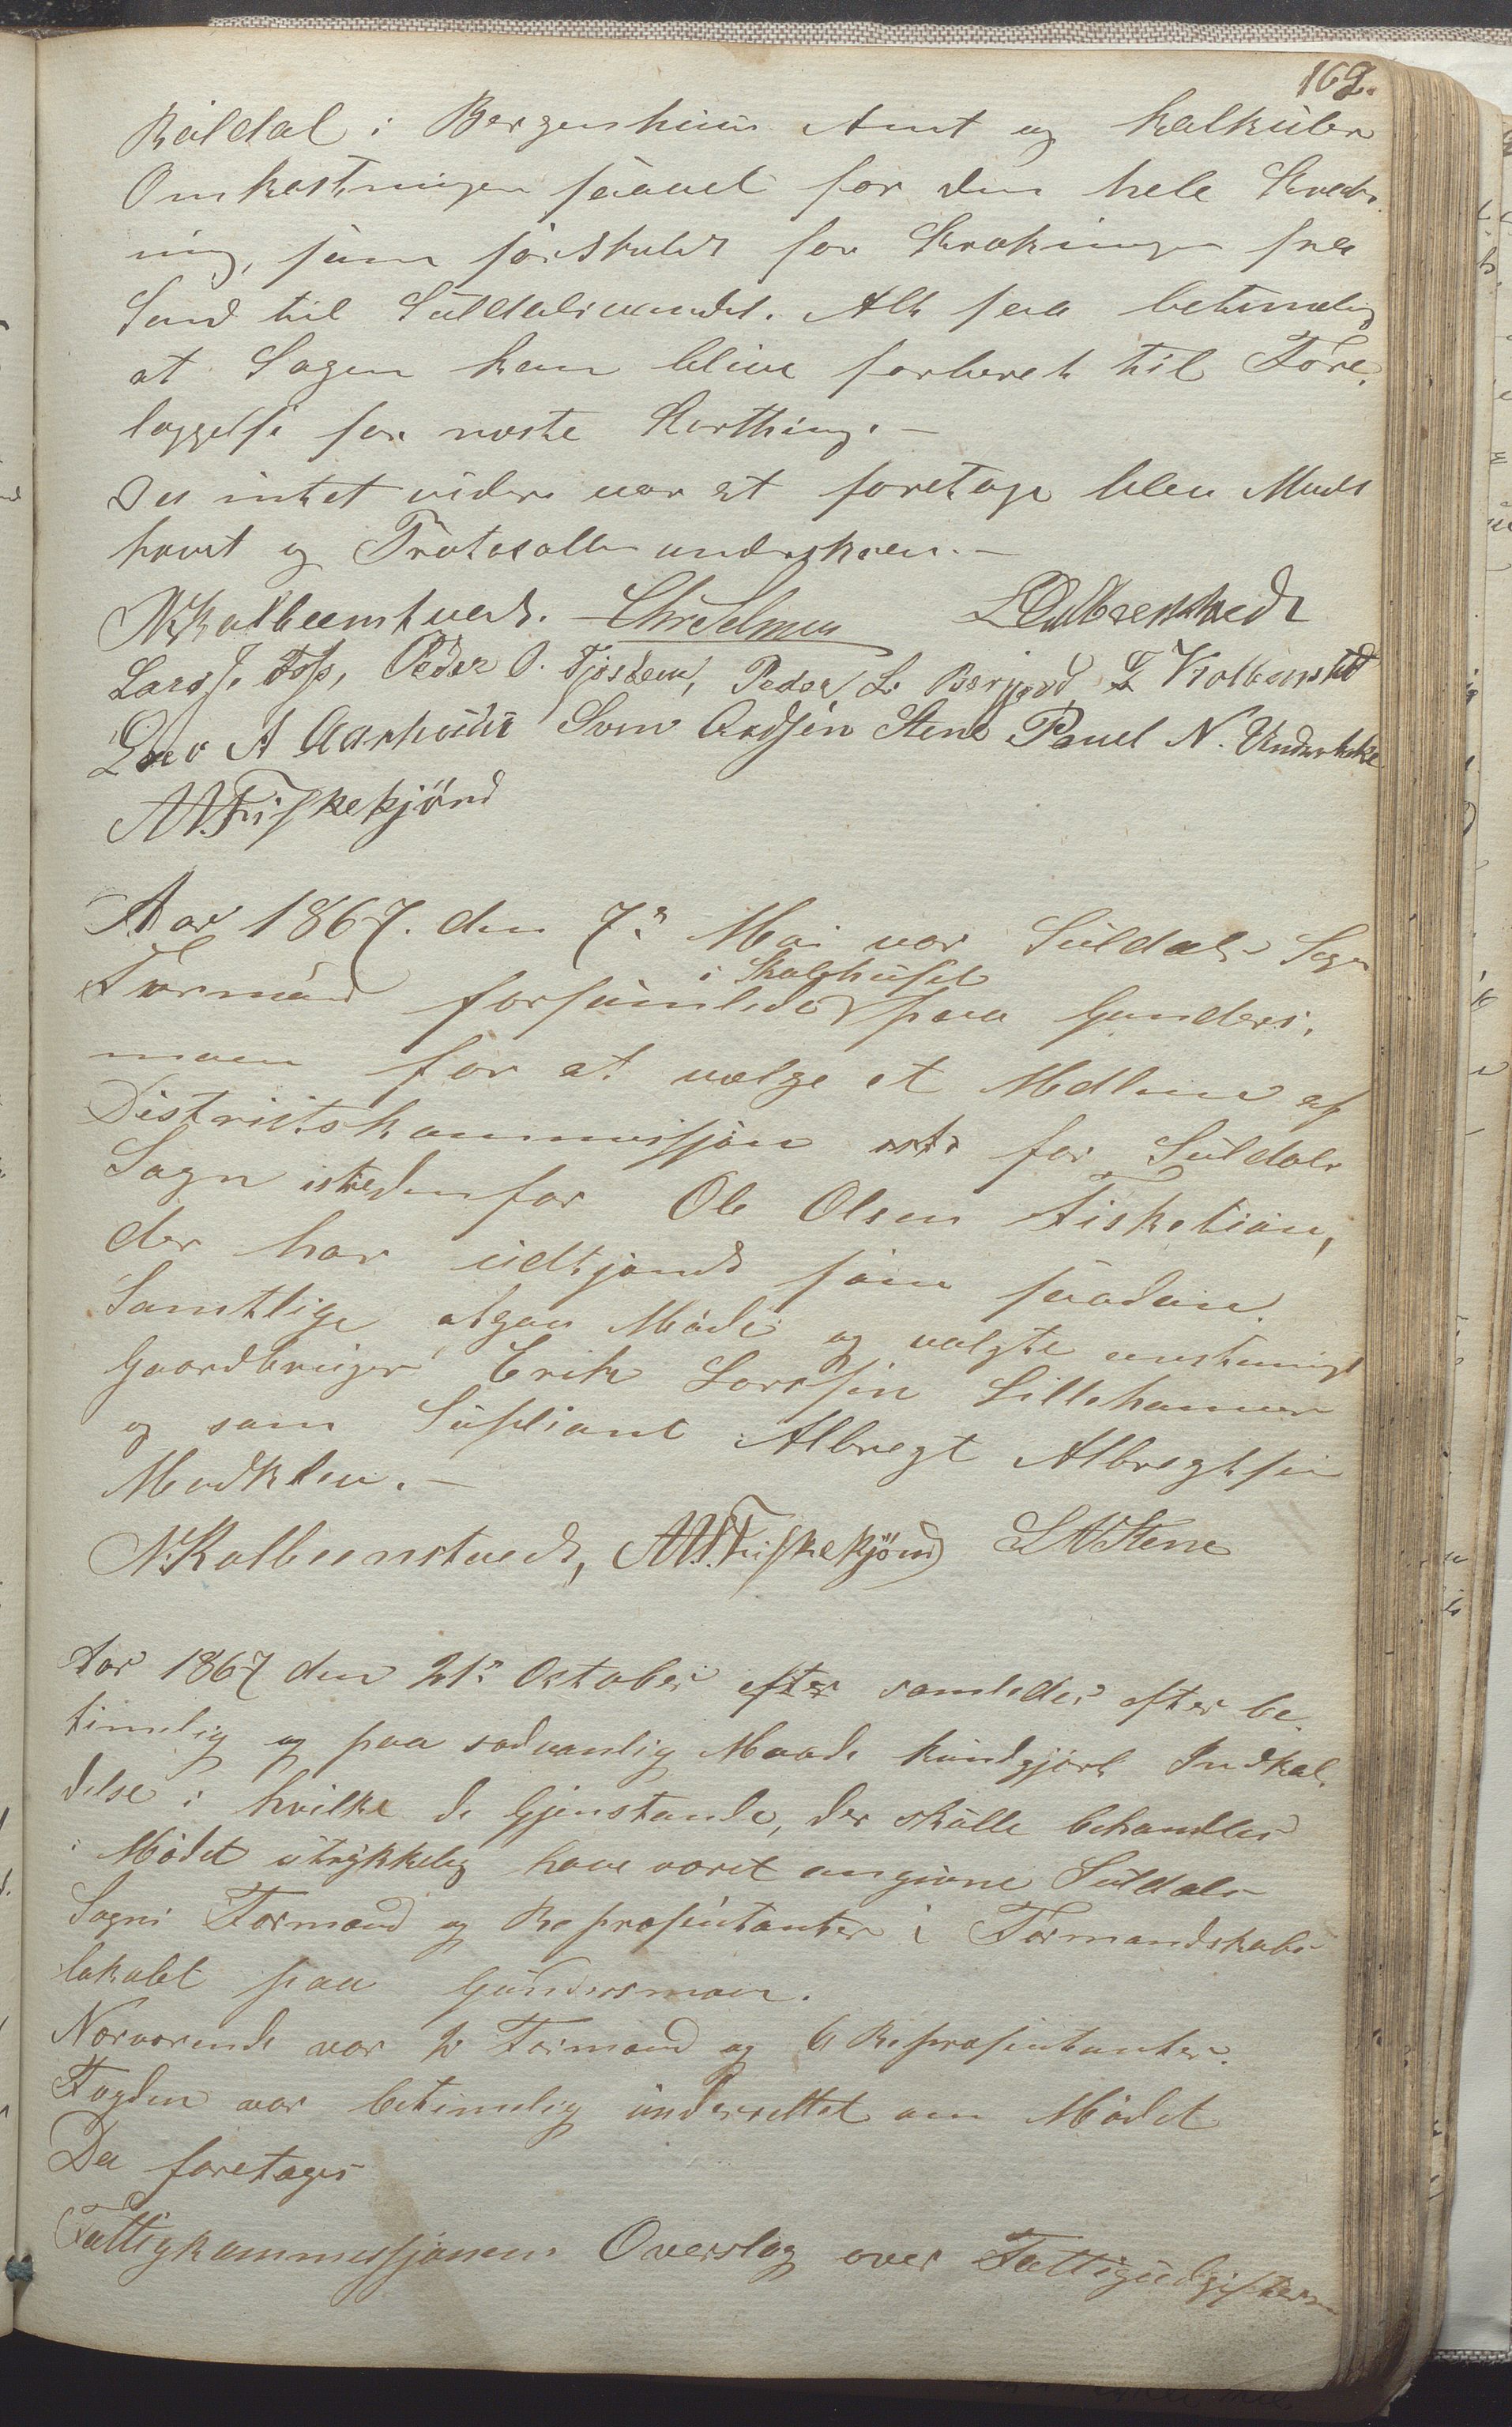 169.
Røldal i Bergenhuus Amt og kalkulere
Omkostningen saavel for den hele Stræk-
ning, som særskildt for Strækningen fra
Sand til Suldalsvandet. Alt saa betimelig
at Sagen kan blive forberedt til Fore-
læggelse for næste Storthing. —
Da intet videre var at foretage blev Mødet
hævet og Protocollen underskreven. —
N. Kolbeenstvedt. Chr Selmer
Lars J. Foss, Peder O. Fjosdem, Peder L. Bergjord L Kolbenstvedt
A Aarhuus Svend Stene Povel N.
A A. Fiskekjønd
Aar 1867. den 7de Mai var Suldals Sogns
i Skolehuset
Formænd forsamlede paa Gunders-
moen for at vælge et Medlem af
Districtskommissjon for Suldals
Sogn istedenfor Ole Olsen
der har udtjandt som saadan.
Samtlige afgav Møde og valgte enstemmigt
Gaardbruger Erik Larssen Lillehammer
og som Supliant Albregt Albregtsen
Mo —
N. Kolbeenstvedt, A A. Fiskekjønd L A Stene
Aar 1867 den 21de October efter samledes efter be-
timelig og paa sædvanlig Maade kundgjort Indkal-
delse i hvilke de Gjenstande, der skulle behandles
i Mødet utrykkelig have været angivne Suldals
Sogns Formænd og Repræsentanter i Formandskabs
lokalet paa Gundersmoen.
Nærværende var 2 Formænd og 6 Repræsentanter.
Fogden var betimelig underrettet om Mødet
Da foretages
Fattigkommissjonens Overslag over Fattigudgifterne